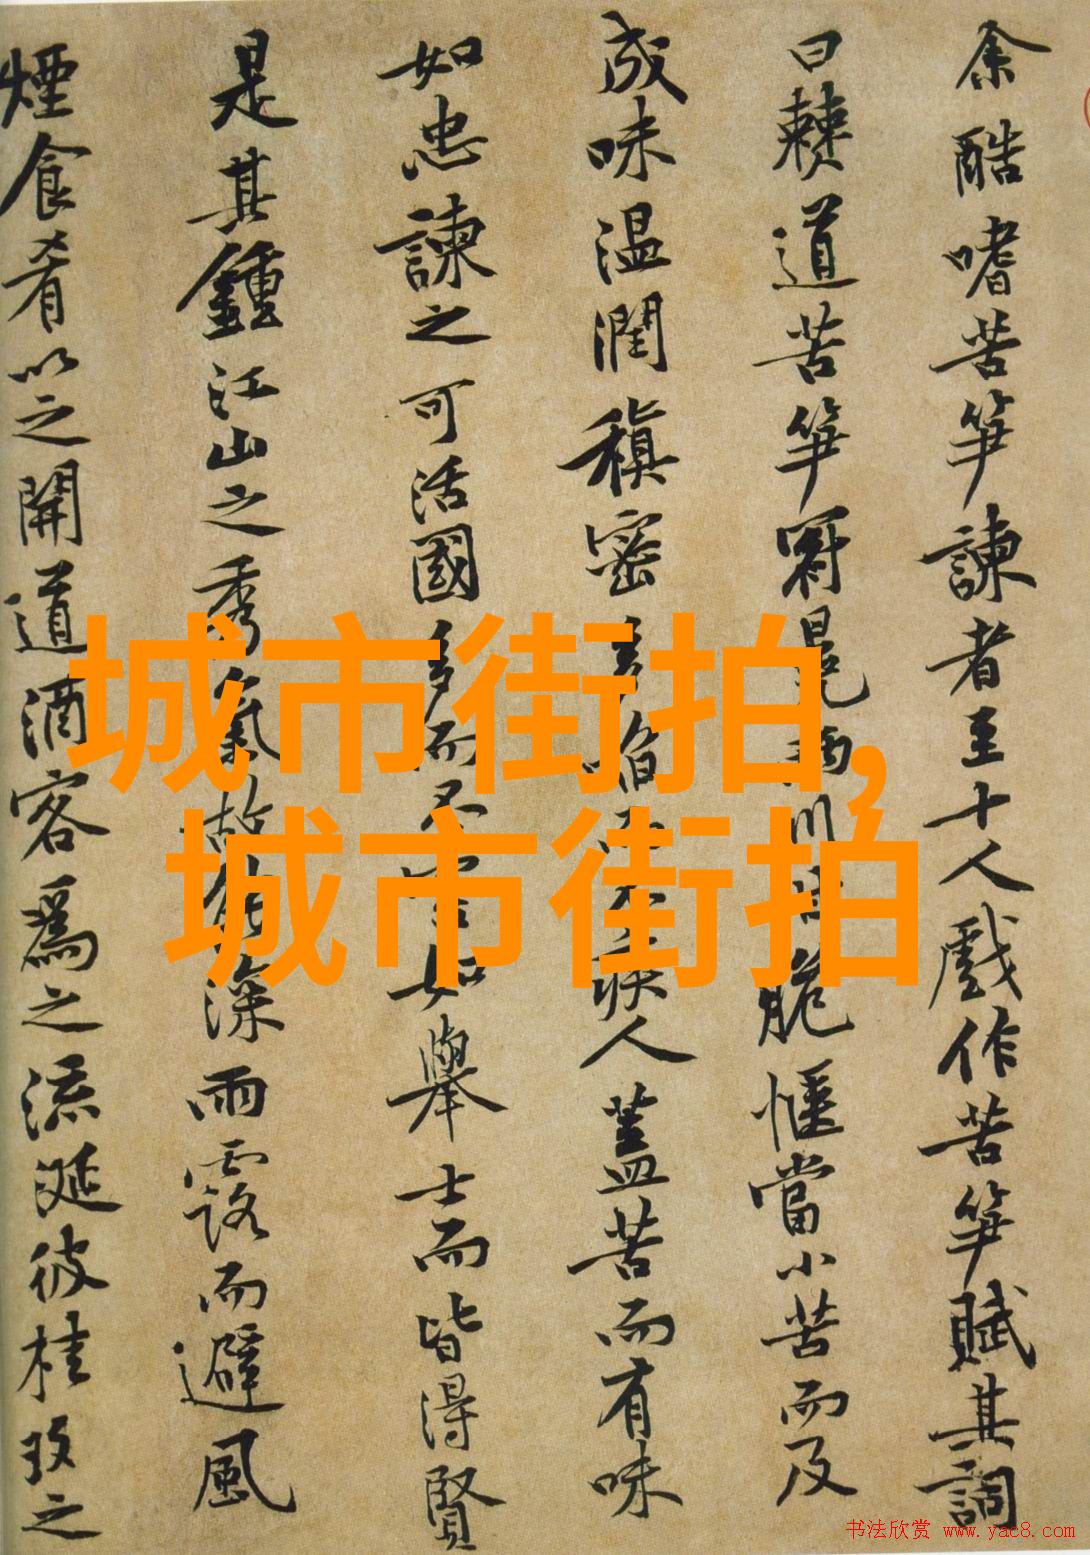 余酷嗜苦笋諫者至十人戲作苦笋賦其詞
曰僰道苦笋冠冕兩川甘脆愜當小苦而及
成味温潤稹密多啗而不疾人蓋苦而有味
如忠諫之可活國多而不害如舉士而皆得賢
是其鍾江山之秀氣故能深雨露而避風
煙食肴以之開道酒客爲之流涎彼桂玫之
城市街拍,
城市街拍
书法欣赏 www.yac8.com